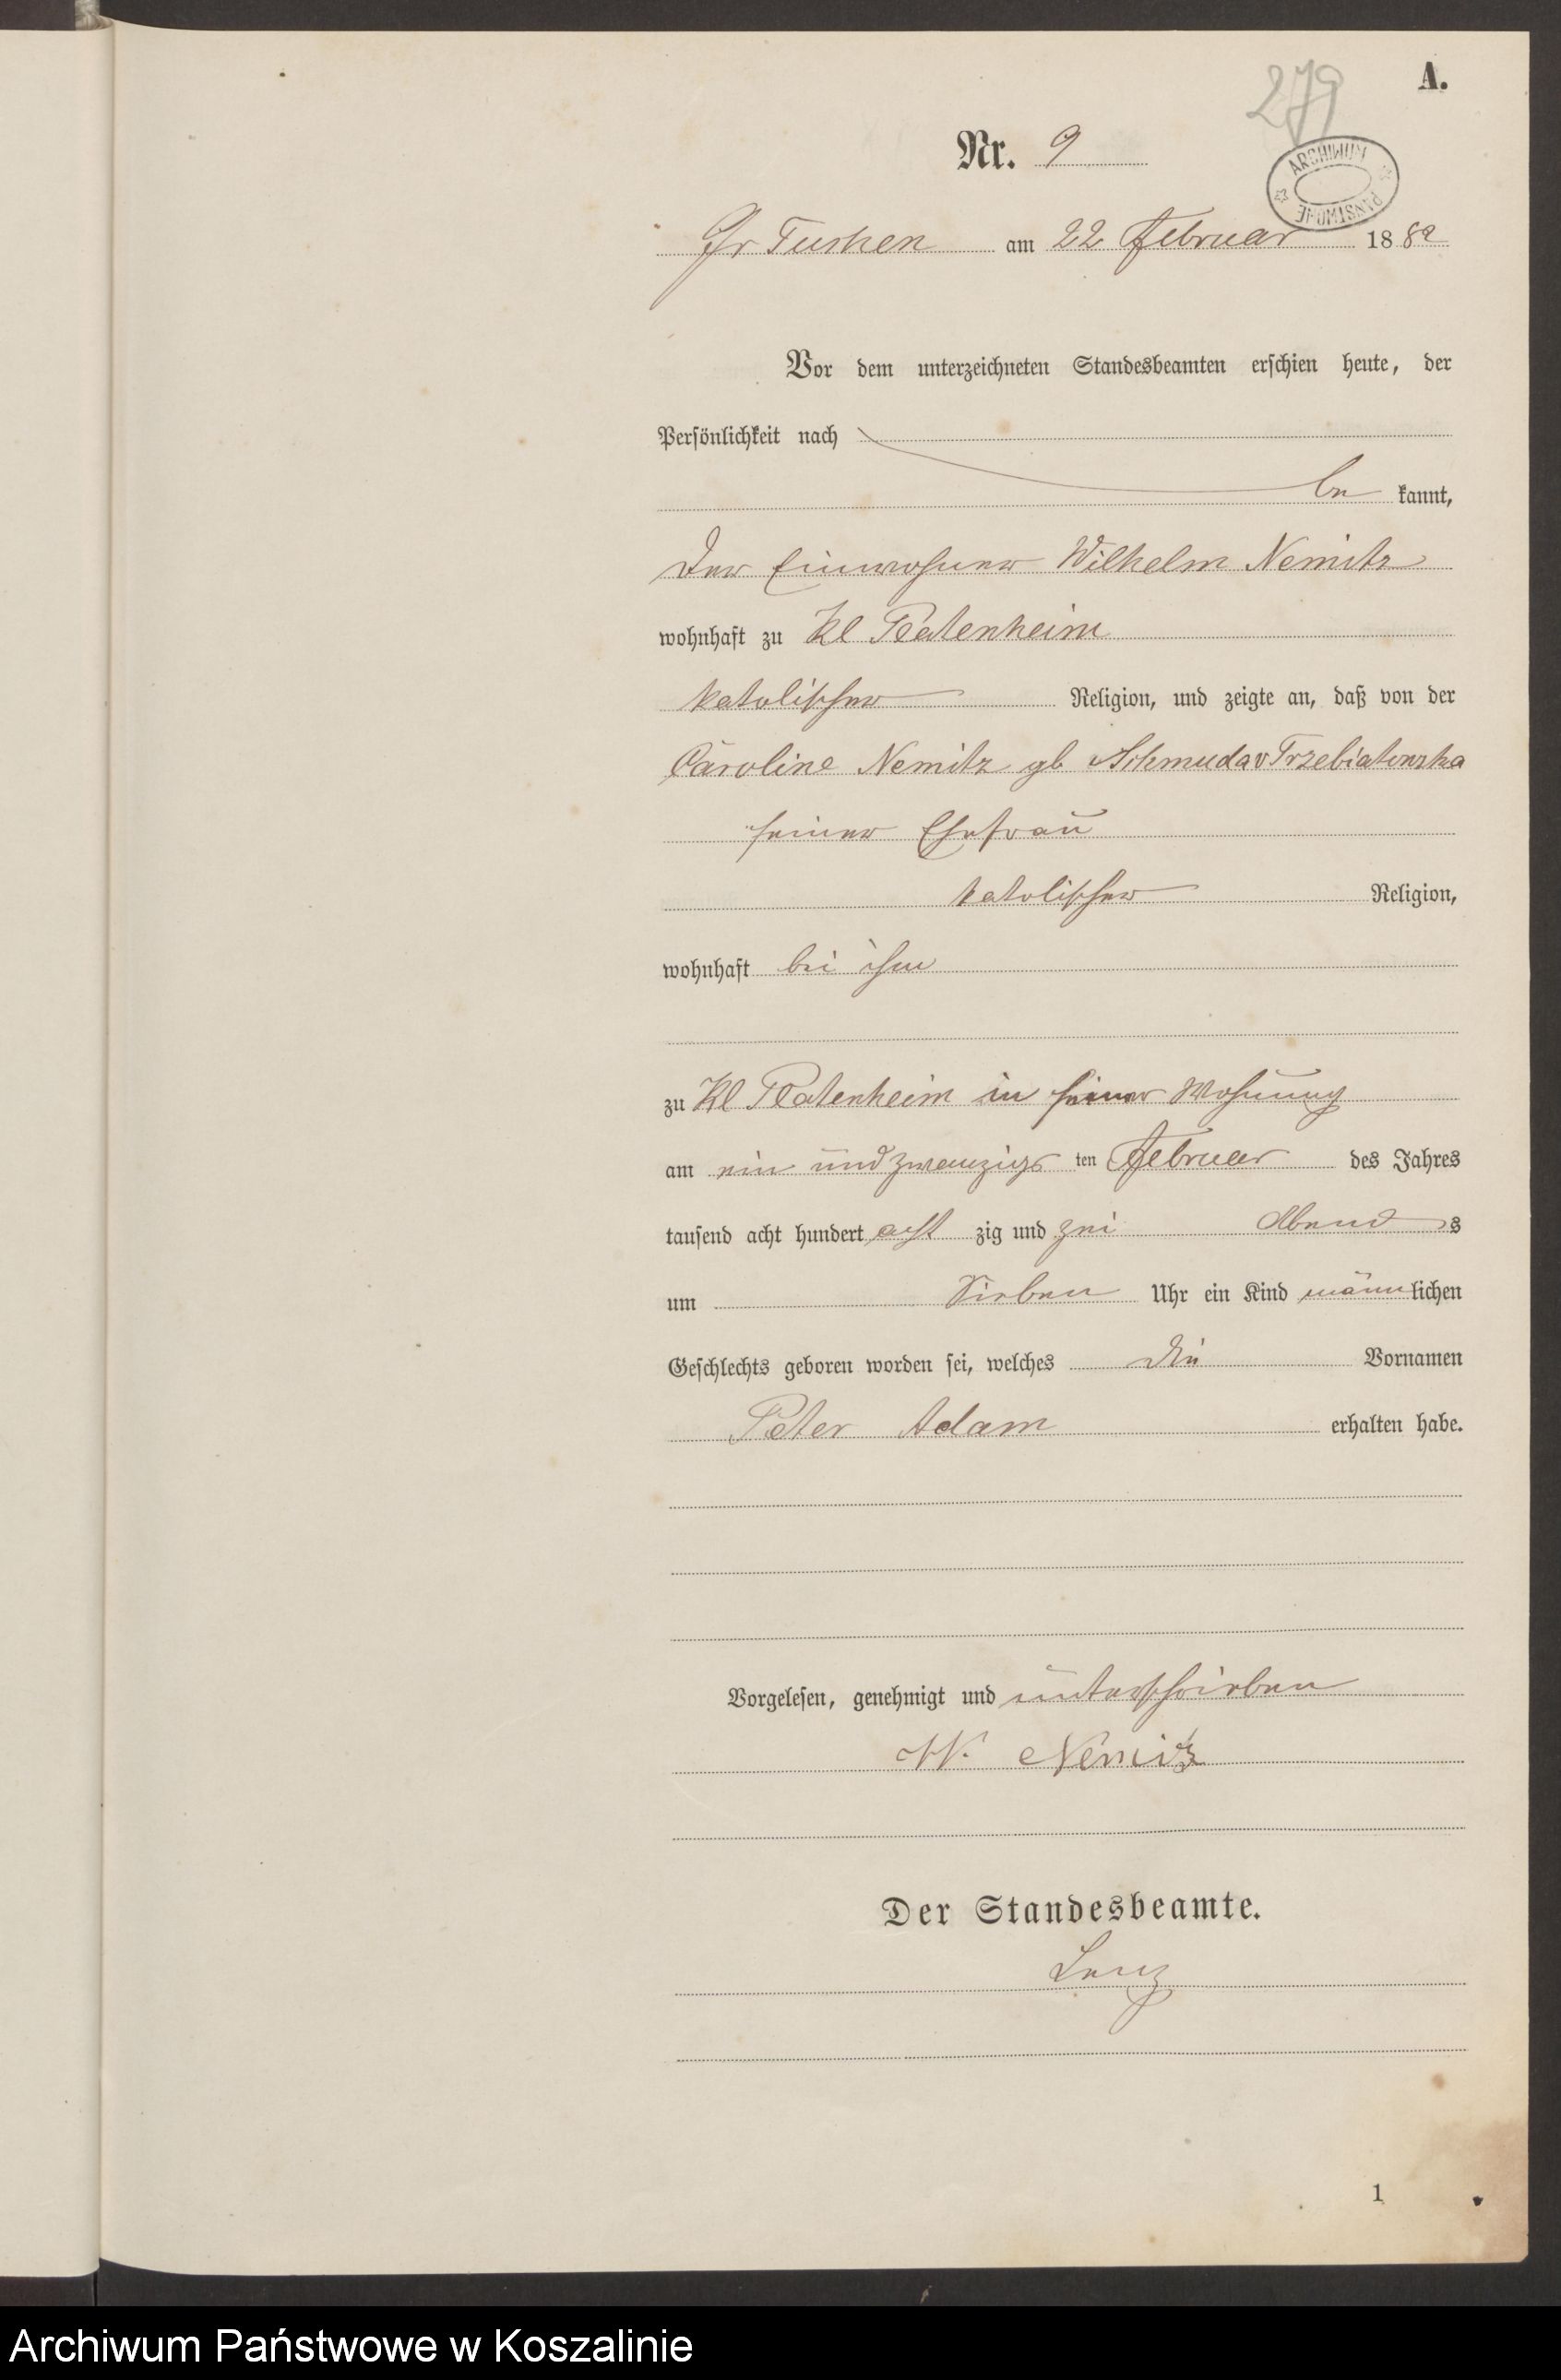 279
A.
Nr. 9
ARCHIWUM PAŃSTWOWE
Gr Tuchen am 22 Februar 1882
Vor dem unterzeichneten Standesbeamten erschien heute, der
Persönlichkeit nach
be kannt,
Der Einwohner Wilhelm Nemitz
wohnhaft zu Kl Platenheim
katolischer Religion, und zeigte an, daß von der
Caroline Nemitz gb Schmuda v Trzebiatowska
seiner Ehefrau
katolischer Religion,
wohnhaft bei ihm
zu Kl Platenheim in seiner Wohnung
am ein und zwanzigs ten Februar des Jahres
tausend acht hundert acht zig und zwei Abend s
um Sieben Uhr ein Kind männlichen
Geschlechts geboren worden sei, welches die Vornamen
Peter Adam erhalten habe.
Vorgelesen, genehmigt und unterschrieben
W. Nemitz
Der Standesbeamte.
Lenz
1
Archiwum Państwowe w Koszalinie